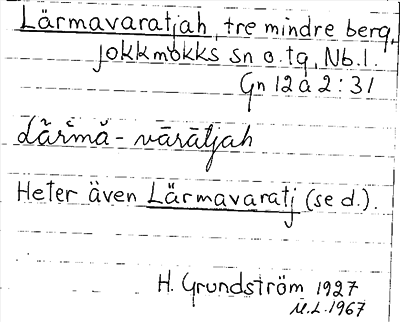 Lärmavaratjah, tre mindre berg,
Jokkmokks sn o. tg, Nb. l.
Gn 12 a 2:31
lā̆r̄mā̆ - vārātjah
Heter även Lärmavaratj (se d.).
H. Grundström 1927
M.L. 1967